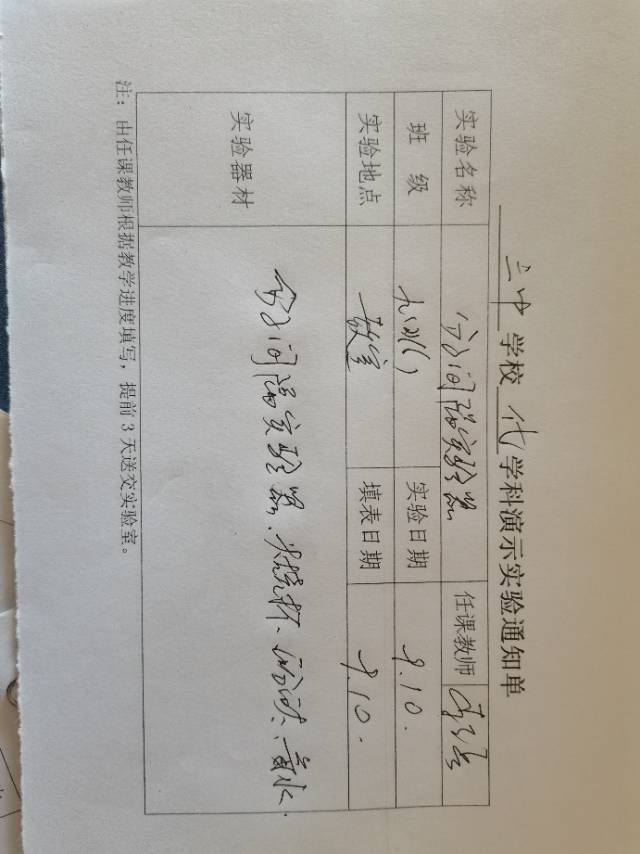 三中学校 化 学科演示实验通知单
实验名称 分子间隔实验器 任课教师
班 级 九 实验日期 9.10.
实验地点 教室 填表日期 9.10.
实验器材 分子间隔实验器、烧杯、酚酞、氨水.
注：由任课教师根据教学进度填写，提前3天送交实验室。